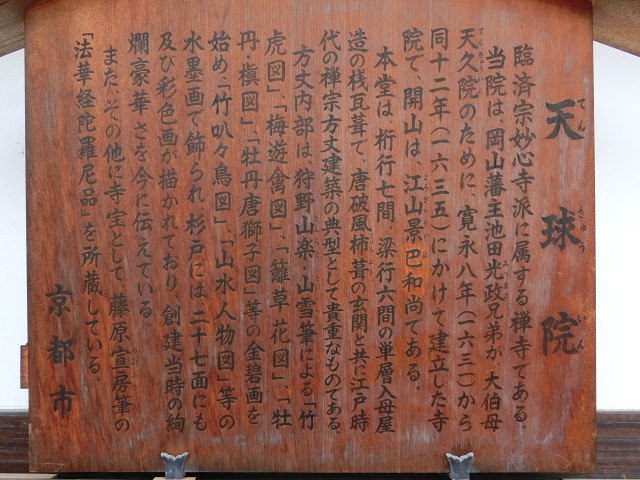 天球院
てんきゅういん
臨済宗妙心寺派に属する禅寺である。
当院は、岡山藩主池田光政兄弟が、大伯母
みつまさ
天久院のために、寛永八年(一六三一)から
てんきゅういん
同十二年(一六三五)にかけて建立した寺
院で、開山は、江山景巴和尚である。
本堂は、桁行七間、梁行六間の単層入母屋
造の桟瓦葺で、唐破風柿葺の玄関と共に江戸時
代の禅宗方丈建築の典型として貴重なものである。
方丈内部は、狩野山楽・山雪筆による「竹
虎図」、「梅遊禽図」、「籬草花図」、「牡
丹・槙図」、「牡丹唐獅子図」等の金碧画を
始め、「竹叭々鳥図」、「山水人物図」等の
水墨画で飾られ、杉戸には二十七面にも
及び彩色画が描かれており、創建当時の絢
爛豪華さを今に伝えている。
また、その他に寺宝として、藤原宣房筆の
のぶふさ
「法華経陀羅尼品」を所蔵している。
京都市